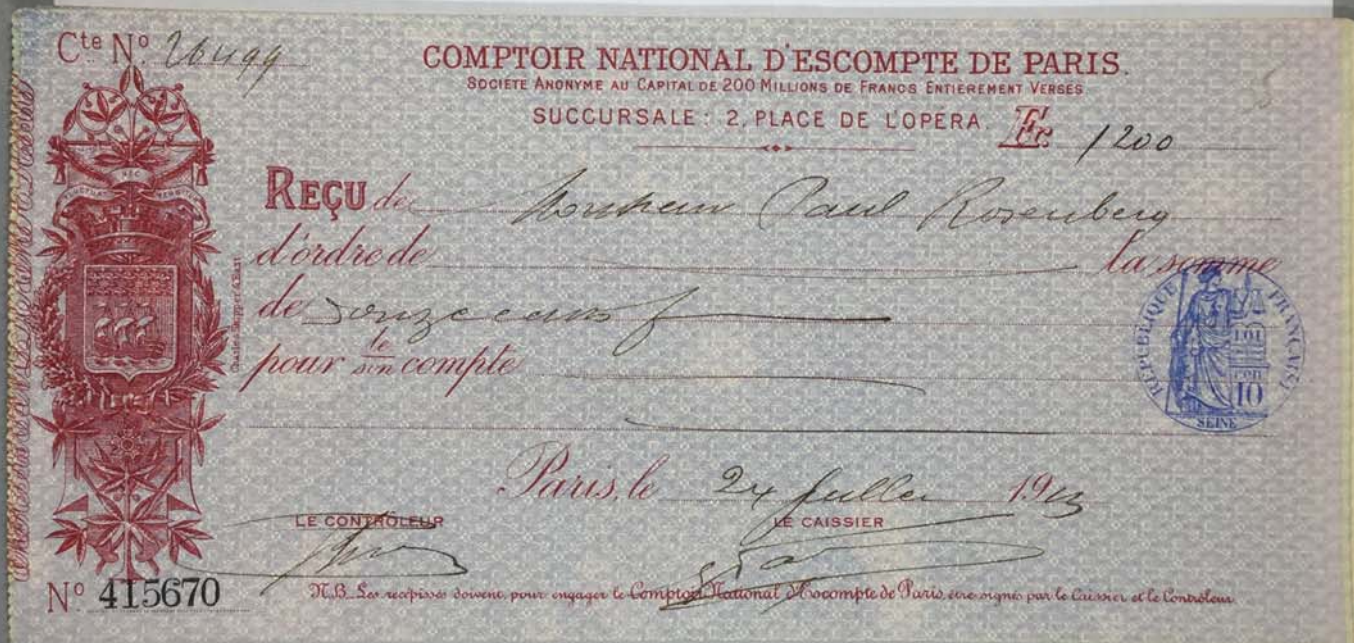 Cte No. 26499
COMPTOIR NATIONAL D'ESCOMPTE DE PARIS.
SOCIÉTÉ ANONYME AU CAPITAL DE 200 MILLIONS DE FRANCS ENTIÈREMENT VERSÉS
SUCCURSALE: 2, PLACE DE L'OPÉRA. Fr. 1200
FLUCTUAT NEC
REÇU de Monsieur Paul Rosenberg
d'ordre de la somme
de Douze cents f
pour le/son compte
Charles Skipper & East
RÉPUBLIQUE FRANÇAISE
LOI
10
SEINE
Paris, le 24 Juillet 1913
LE CONTRÔLEUR LE CAISSIER
No 415670 N.B. Les récépissés doivent, pour engager le Comptoir National d'Escompte de Paris, être signés par le Caissier et le Contrôleur.